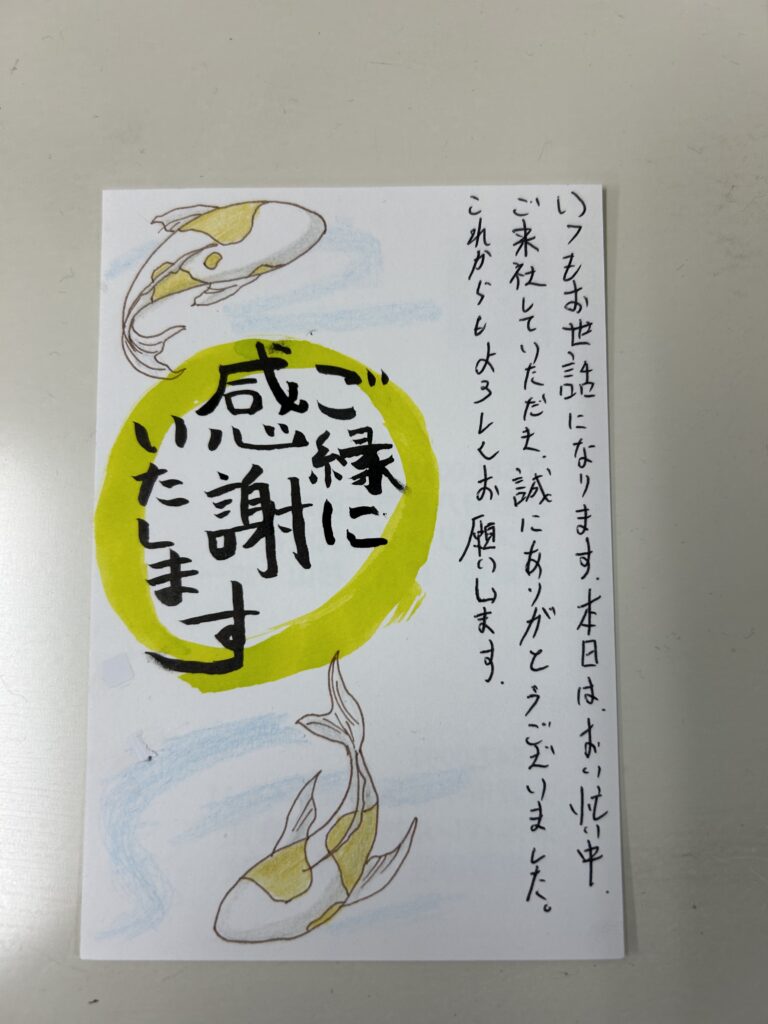 いつもお世話になります。本日は、お忙い中、
ご来社していただき、誠にありがとうございました。
これからもよろしくお願いします。
ご縁に
感謝
いたします